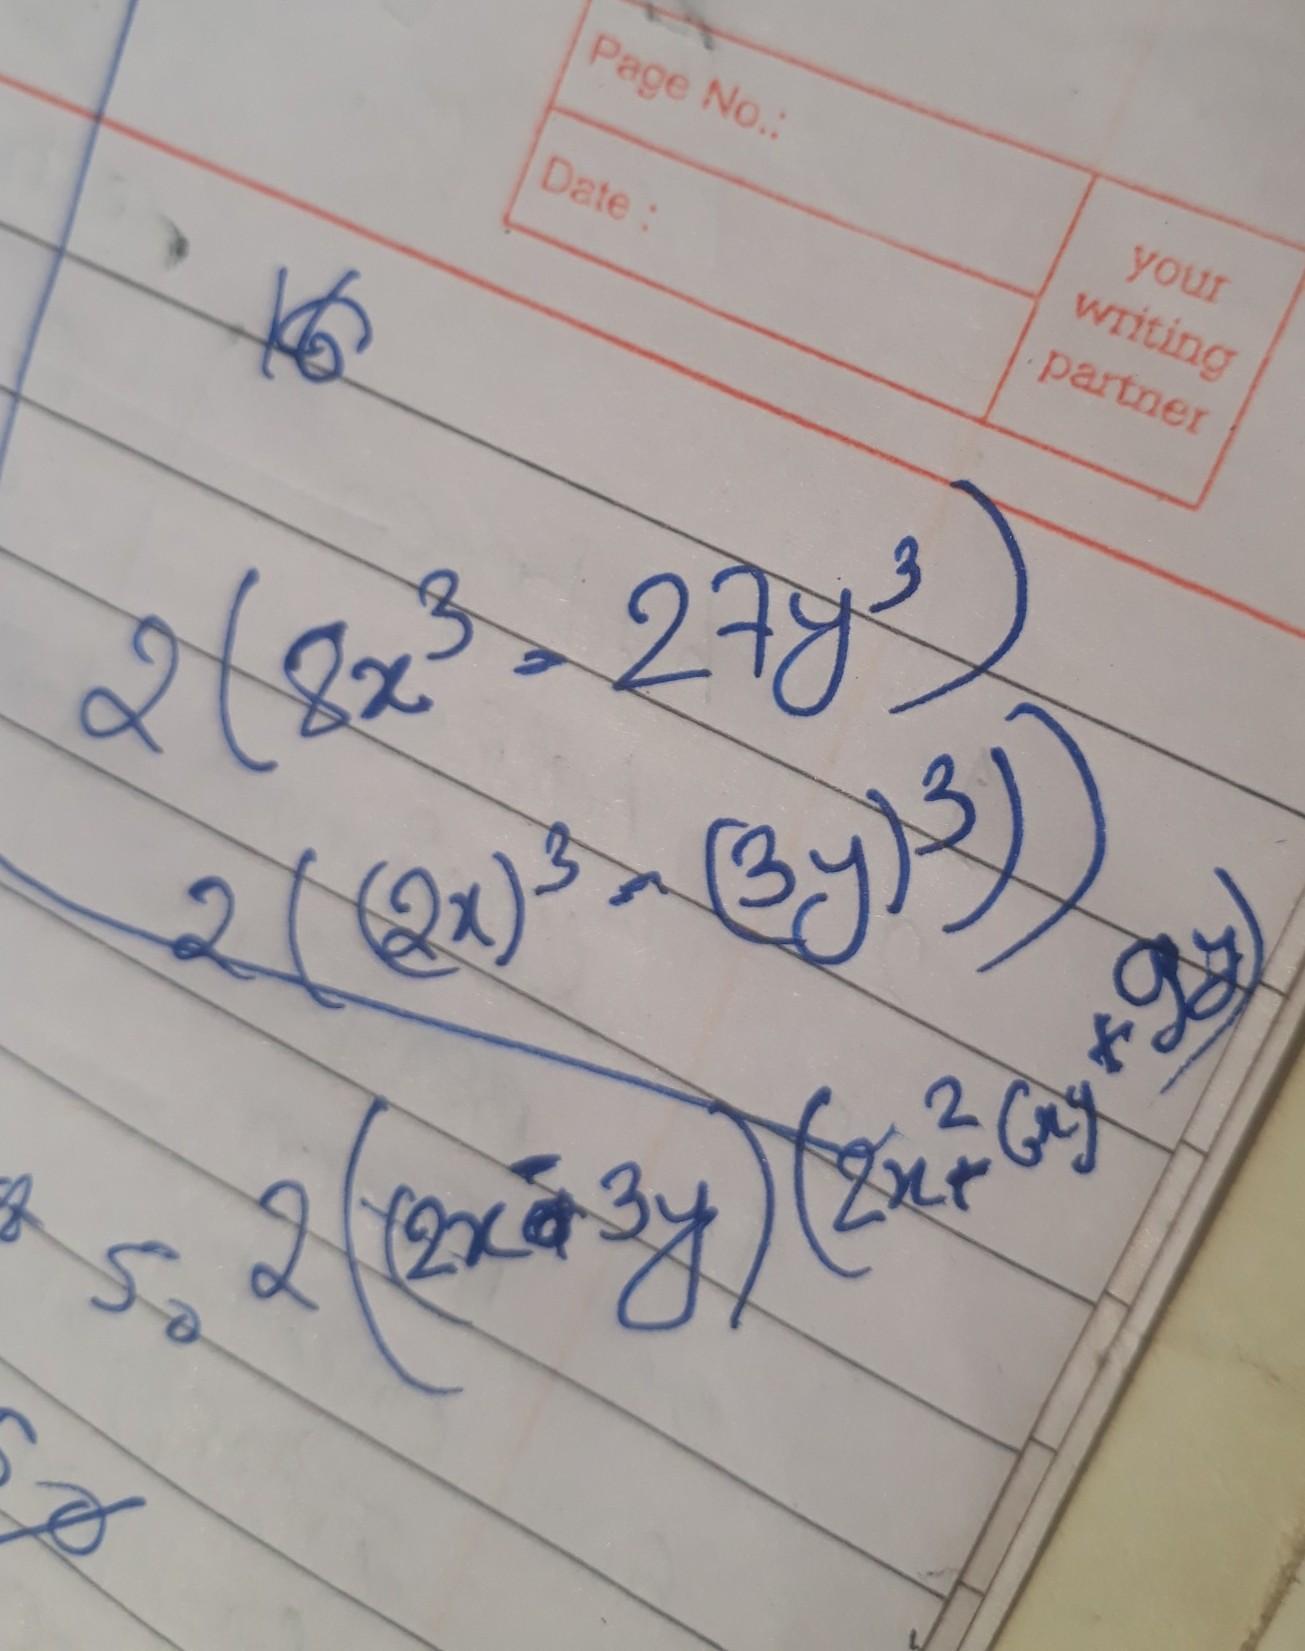 Page No.:
Date :
your
writing
partner
16
2(8x³ - 27y³)
2((2x)³ - (3y)³))
So 2((2x - 3y)(2x² + 6xy + 9y)